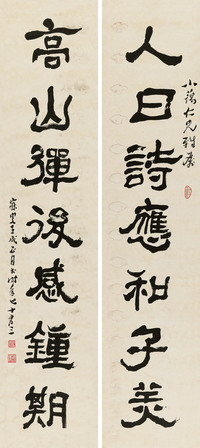 人日詩應和子美
小蕅仁兄雅屬
高山彈後感鍾期